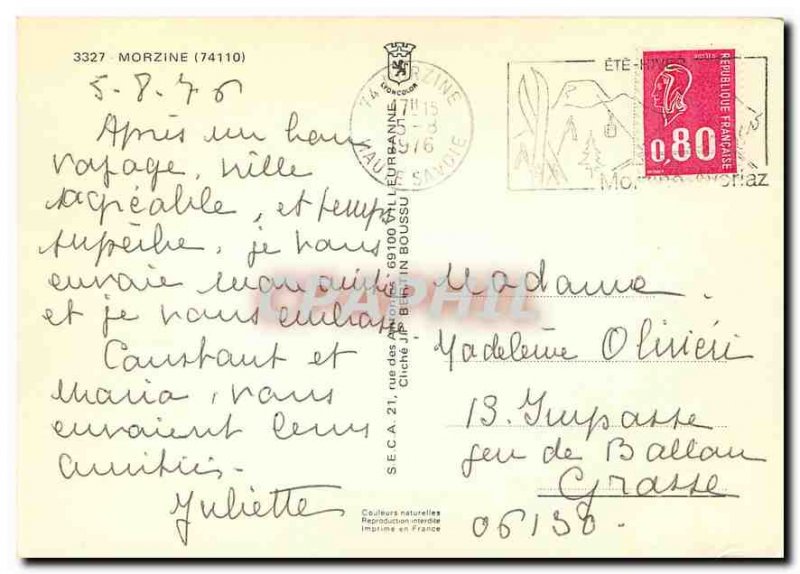 3327 - MORZINE (74110)
LYONCOLOR
5.8.76
Après un bon
voyage, ville
agréable, et temps
superbe, je vous
envoie mon amitié
et je vous embrasse
Constant et
Maria, vous
envoient leurs
amitiés.
Juliette
74 MORZINE
17H15
5-8
1976
HAUTE SAVOIE
ÉTÉ-HIVER
Morzine-Avoriaz
POSTES
RÉPUBLIQUE FRANÇAISE
0,80
S.E.C.A. 21, rue des Antonins 69100 VILLEURBANNE
Cliché J.P. BERTIN BOUSSU
CPAPHIL
Madame
Madeleine Olivieri
13. Impasse
jeu de Ballon
Grasse
06130.
Couleurs naturelles
Reproduction interdite
Imprimé en France